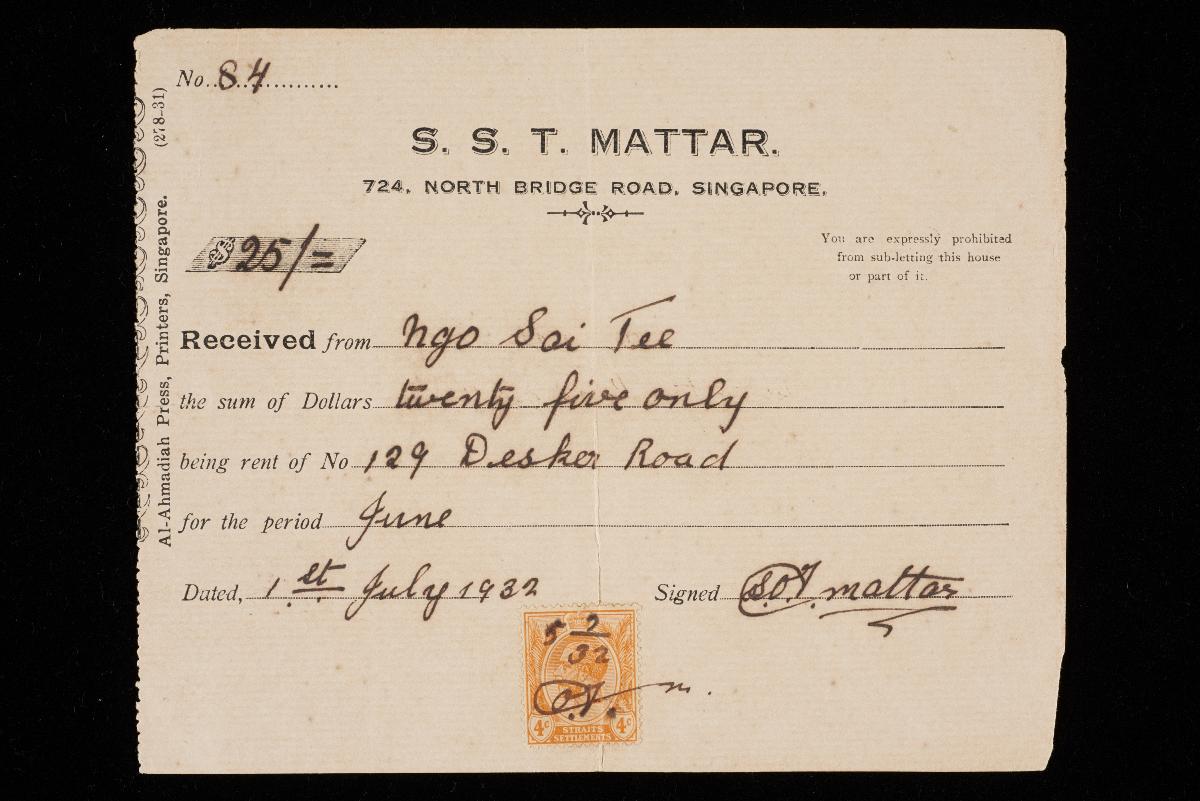 No. 84
S. S. T. MATTAR.
724, NORTH BRIDGE ROAD, SINGAPORE.
$ 25/=
You are expressly prohibited
from sub-letting this house
or part of it.
Received from Ngo Sai Tee
the sum of Dollars twenty five only
being rent of No 129 Desker Road
for the period June
Dated, 1st July 1932
Signed S.O.T. mattar
2
32
4c STRAITS SETTLEMENTS 4c
Al-Ahmadiah Press, Printers, Singapore. (278-31)